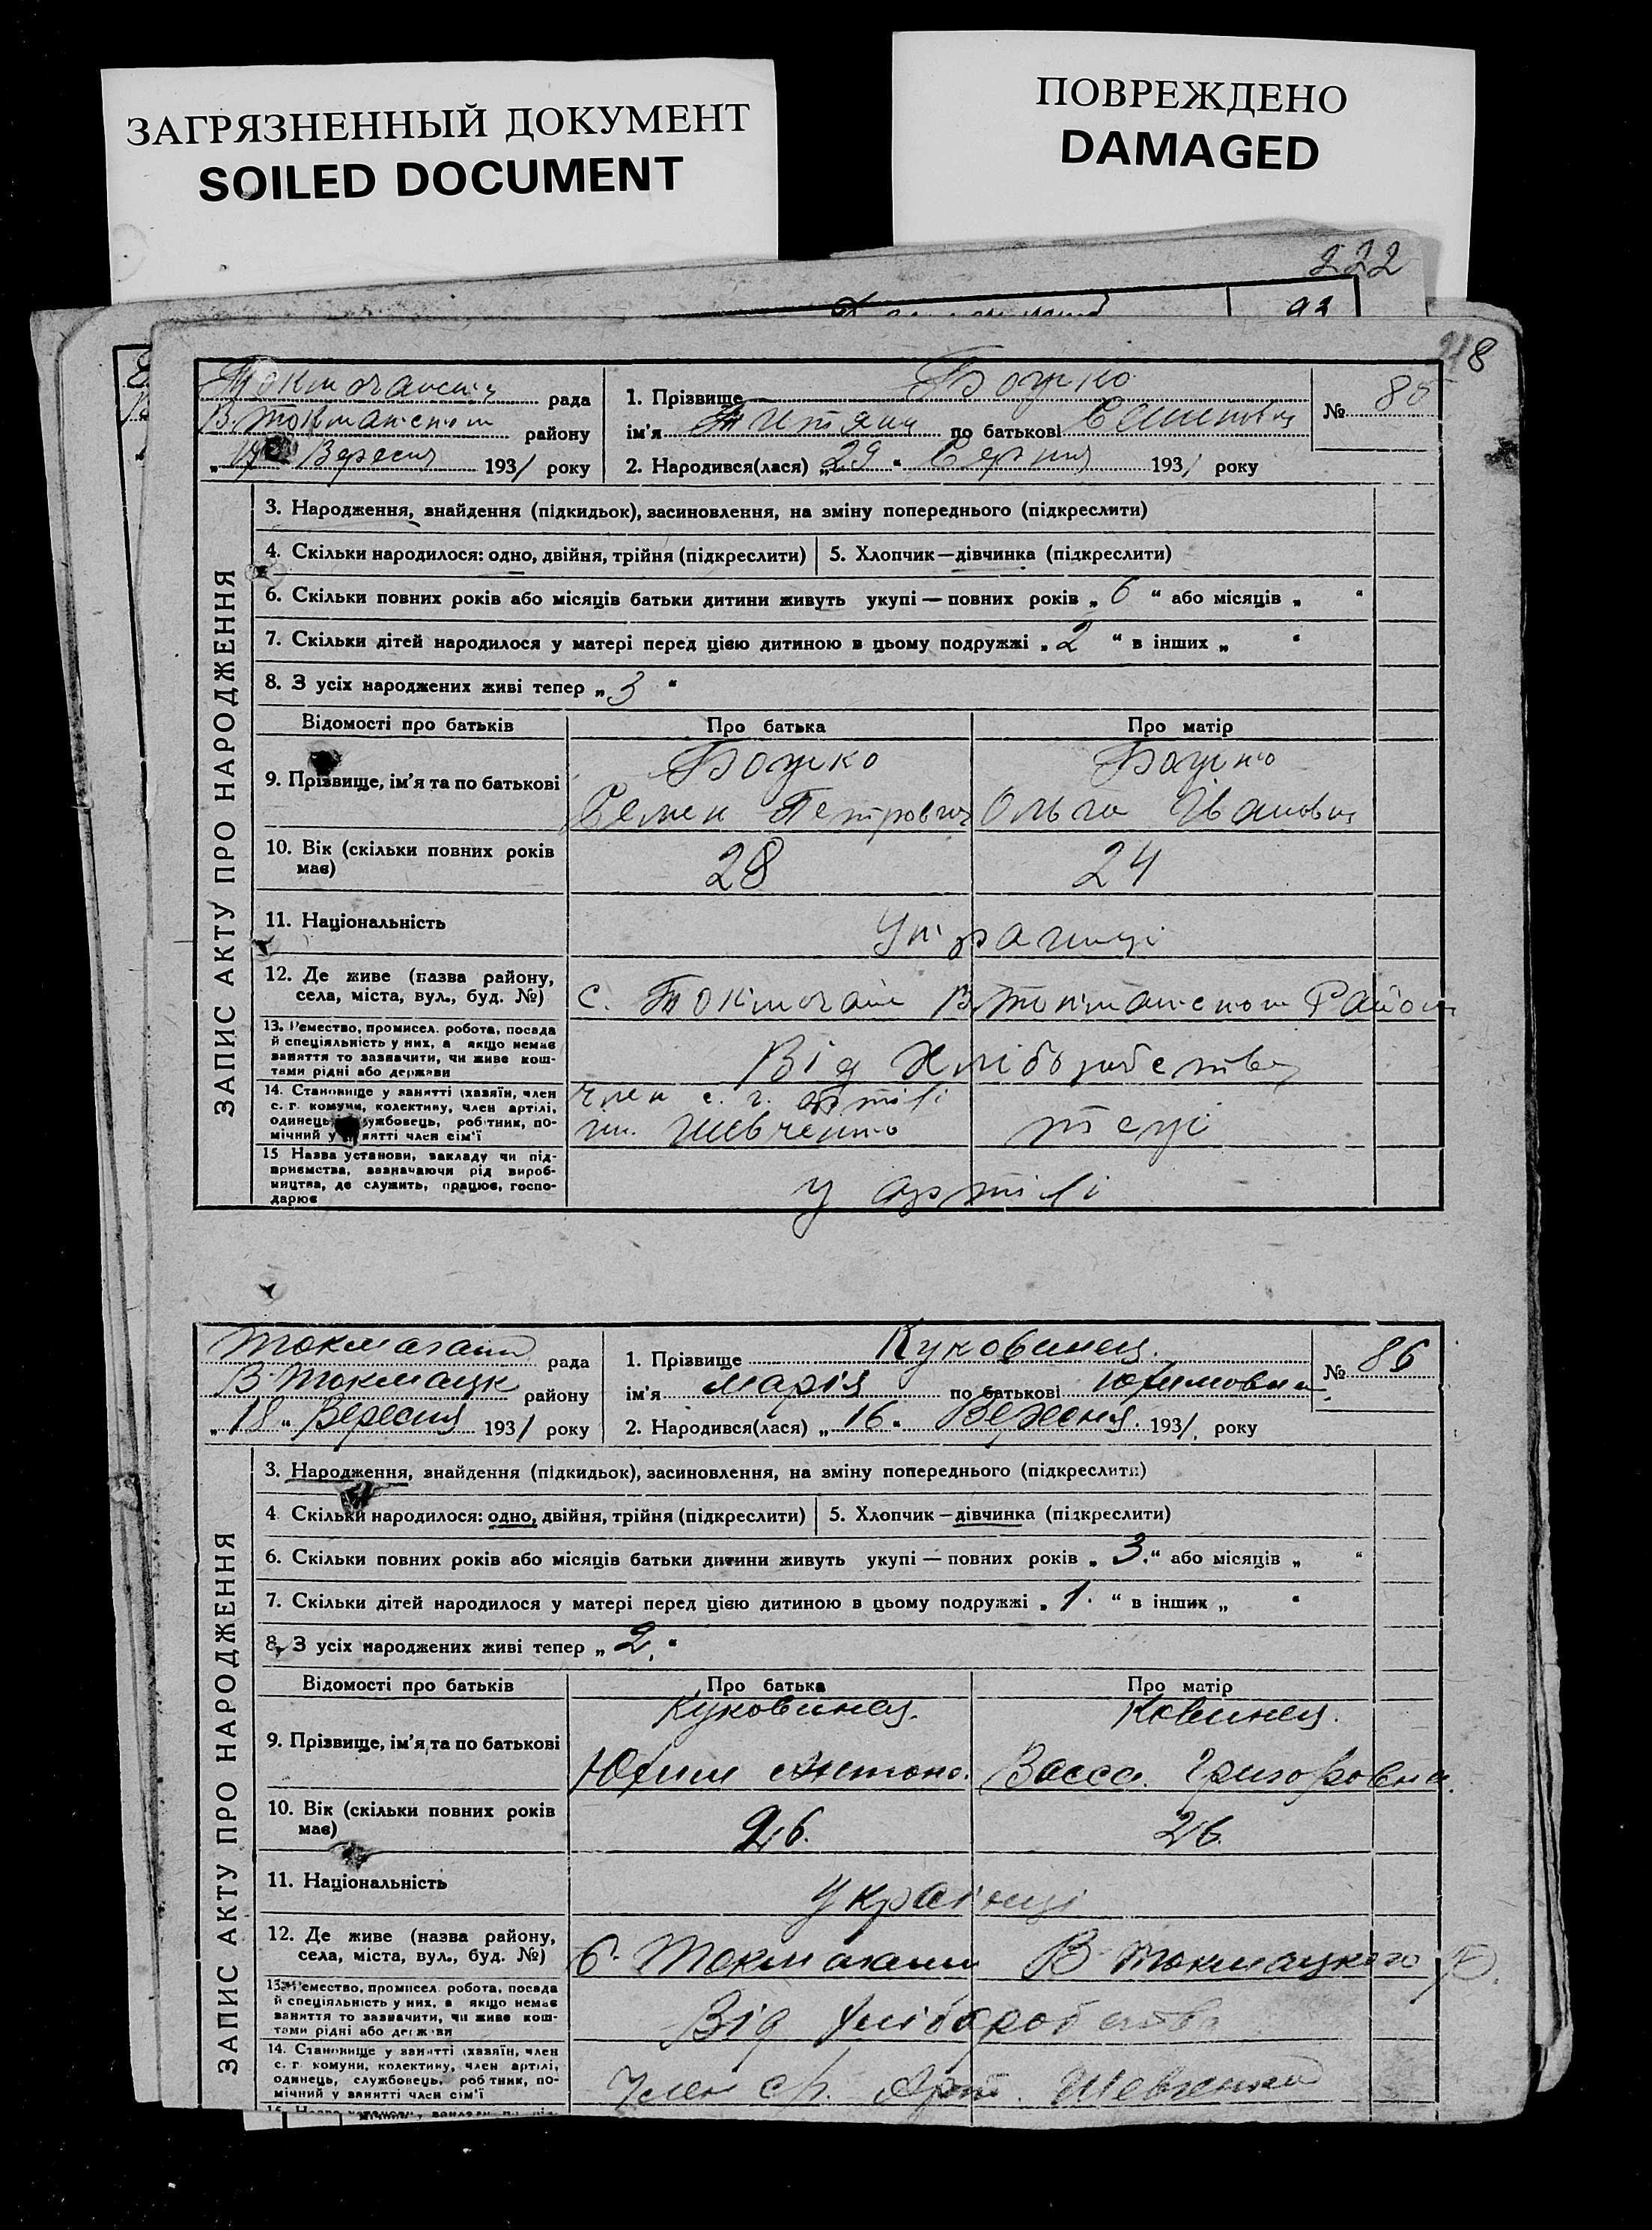 ЗАГРЯЗНЕННЫЙ ДОКУМЕНТ
SOILED DOCUMENT
ПОВРЕЖДЕНО
DAMAGED
222
93
218
рада
району
Вересня 1931 року
1. Прізвище Боцко
ім'я Титяна по батькові
2. Народився(лася) „29" Серпня 1931 року
№ 85
ЗАПИС АКТУ ПРО НАРОДЖЕННЯ
3. Народження, знайдення (підкидьок), засиновлення, на зміну попереднього (підкреслити)
4. Скільки народилося: одно, двійня, трійня (підкреслити) 5. Хлопчик—дівчинка (підкреслити)
6. Скільки повних років або місяців батьки дитини живуть укупі — повних років „ 6 " або місяців „ "
7. Скільки дітей народилося у матері перед цією дитиною в цьому подружжі „ 2 " в інших „ "
8. З усіх народжених живі тепер „ 3 "
Відомості про батьків Про батька Про матір
9. Прізвище, ім'я та по батькові
Боцко Боцко
Семен Петрович Ольга Івановна
10. Вік (скільки повних років має)
28 24
11. Національність
Українці
12. Де живе (назва району, села, міста, вул., буд. №)
с. Токмачані
13. Ремество, промисел. робота, посада й спеціяльність у них, а якщо немає заняття то зазначити, чи живе коштами рідні або держави
Від Хліборобства
14. Становище у занятті (хазяїн, член с. г. комуни, колективу, член артілі, одинець, службовець, робітник, помічний у занятті член сім'ї
член с. г. артілі
ім. Шевченко теж
15 Назва установи, закладу чи підприємства, зазначаючи рід виробництва, де служить, працює, господарює
у артілі
рада
В-Токмацк району
„18" Вересня 1931 року
1. Прізвище Куковинец.
ім'я Марія по батькові Юхимовна
2. Народився(лася) „16" Вересня. 1931. року
№ 86
ЗАПИС АКТУ ПРО НАРОДЖЕННЯ
3. Народження, знайдення (підкидьок), засиновлення, на зміну попереднього (підкреслити)
4. Скільки народилося: одно, двійня, трійня (підкреслити) 5. Хлопчик—дівчинка (підкреслити)
6. Скільки повних років або місяців батьки дитини живуть укупі — повних років „ 3. " або місяців „ "
7. Скільки дітей народилося у матері перед цією дитиною в цьому подружжі „ 1. " в інших „ "
8. З усіх народжених живі тепер „ 2. "
Відомості про батьків Про батька Про матір
9. Прізвище, ім'я та по батькові
Куковинец. Ковинец.
Юхим Антоно. Васса. Григоровна.
10. Вік (скільки повних років має)
26. 26.
11. Національність
Українці
12. Де живе (назва району, села, міста, вул., буд. №)
В-Токмацкого Р.
13. Ремество, промисел. робота, посада й спеціяльність у них, а якщо немає заняття то зазначити, чи живе коштами рідні або держави
Від Хліборобства
14. Становище у занятті (хазяїн, член с. г. комуни, колективу, член артілі, одинець, службовець, робітник, помічний у занятті член сім'ї
Член с/г. Арт. Шевченка